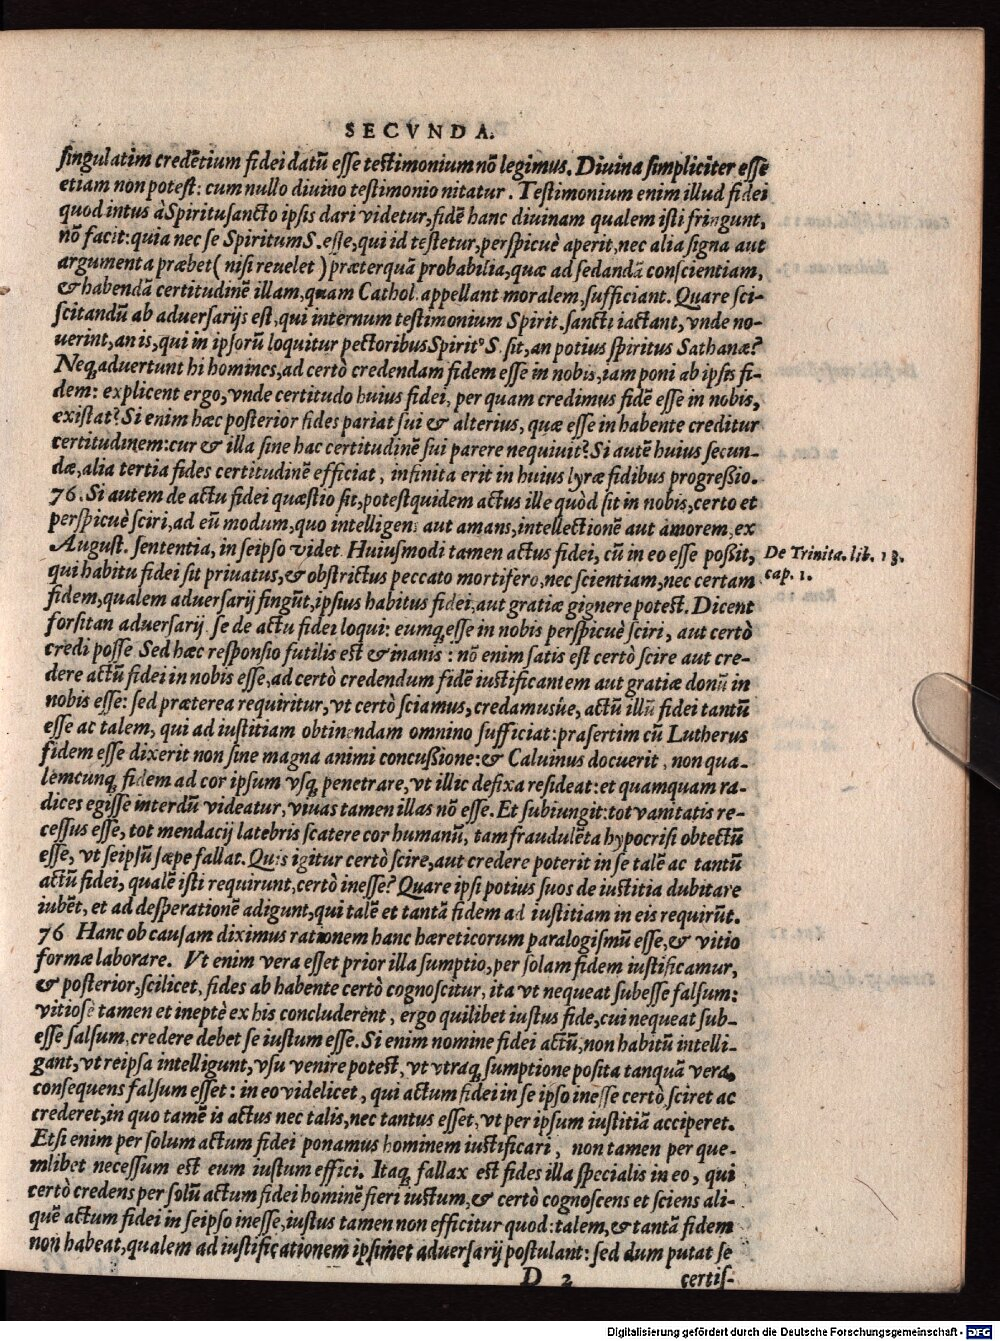 SECVNDA.
singulatim credẽtium fidei datũ esse testimonium nõ legimus. Divina simpliciter esse
etiam non potest: cum nullo diuino testimonio nitatur. Testimonium enim illud fidei
quod intus à Spiritusancto ipsis dari videtur, fidẽ hanc divinam qualem isti fringunt,
nõ facit: quia nec se Spiritum S. esse, qui id testetur, perspicuè aperit, nec alia signa aut
argumenta præbet (nisi reuelet) præterquã probabilia, quæ ad sedandã conscientiam,
& habendã certitudinẽ illam, quam Cathol. appellant moralem, sufficiant. Quare sci-
scitandũ ab aduersarijs est, qui internum testimonium Spirit. sancti iactant, vnde no-
uerint, an is, qui in ipsorũ loquitur pectoribus Spiritꝰ S. sit, an potius spiritus Sathanæ?
Neq; aduertunt hi homines, ad certò credendam fidem esse in nobis, iam poni ab ipsis fi-
dem: explicent ergo, vnde certitudo huius fidei, per quam credimus fidẽ esse in nobis,
existat? Si enim hæc posterior fides pariat sui & alterius, quæ esse in habente creditur
certitudinem: cur & illa sine hac certitudinẽ sui parere nequiuit? Si autẽ huius secun-
dæ, alia tertia fides certitudinẽ efficiat, infinita erit in huius lyræ fidibus progressio.
76. Si autem de actu fidei quæstio sit, potest quidem actus ille quòd sit in nobis, certo et
perspicuè sciri, ad eũ modum, quo intelligens aut amans, intellectionẽ aut amorem, ex
August. sententia, in seipso videt. Huiusmodi tamen actus fidei, cũ in eo esse possit,
De Trinita. lib. 13.
cap. 1.
qui habitu fidei sit priuatus, & obstrictus peccato mortifero, nec scientiam, nec certam
fidem, qualem aduersarij fingũt, ipsius habitus fidei, aut gratiæ gignere potest. Dicent
forsitan aduersarij se de actu fidei loqui: eumq; esse in nobis perspicuè sciri, aut certò
credi posse Sed hæc responsio futilis est & inanis: nõ enim satis est certò scire aut cre-
dere actũ fidei in nobis esse, ad certò credendum fidẽ iustificantem aut gratiæ donũ in
nobis esse: sed præterea requiritur, vt certò sciamus, credamusue, actũ illũ fidei tantũ
esse ac talem, qui ad iustitiam obtinendam omnino sufficiat: præsertim cũ Lutherus
fidem esse dixerit non sine magna animi concussione: & Caluinus docuerit, non qua-
lemcunq; fidem ad cor ipsum vsq; penetrare, vt illic defixa resideat: et quamquam ra-
dices egisse interdũ videatur, viuas tamen illas nõ esse. Et subiungit: tot vanitatis re-
cessus esse, tot mendacij latebris scatere cor humanũ, tam fraudulẽta hypocrisi obtectũ
esse, vt seipsũ sæpe fallat. Quis igitur certò scire, aut credere poterit in se talẽ ac tantũ
actũ fidei, qualẽ isti requirunt, certò inesse? Quare ipsi potius suos de iustitia dubitare
iubẽt, et ad desperationẽ adigunt, qui talẽ et tantã fidem ad iustitiam in eis requirũt.
76 Hanc ob causam diximus rationem hanc hæreticorum paralogismũ esse, & vitio
formæ laborare. Vt enim vera esset prior illa sumptio, per solam fidem iustificamur,
& posterior, scilicet, fides ab habente certò cognoscitur, ita vt nequeat subesse falsum:
vitiosè tamen et ineptè ex his concluderent, ergo quilibet iustus fide, cui nequeat sub-
esse falsum, credere debet se iustum esse. Si enim nomine fidei actũ, non habitũ intelli-
gant, vt reipsa intelligunt, vsu venire potest, vt vtraq; sumptione posita tanquã vera,
consequens falsum esset: in eo videlicet, qui actum fidei in se ipso inesse certò sciret ac
crederet, in quo tamẽ is actus nec talis, nec tantus esset, vt per ipsum iustitiã acciperet.
Etsi enim per solum actum fidei ponamus hominem iustificari, non tamen per que-
mlibet necessum est eum iustum effici. Itaq; fallax est fides illa specialis in eo, qui
certò credens per solũ actum fidei hominẽ fieri iustum, & certò cognoscens et sciens ali-
quẽ actum fidei in seipso inesse, iustus tamen non efficitur quod: talem, & tantã fidem
non habeat, qualem ad iustificationem ipsimet aduersarij postulant: sed dum putat se
D 2 certis-
Digitalisierung gefördert durch die Deutsche Forschungsgemeinschaft - DFG